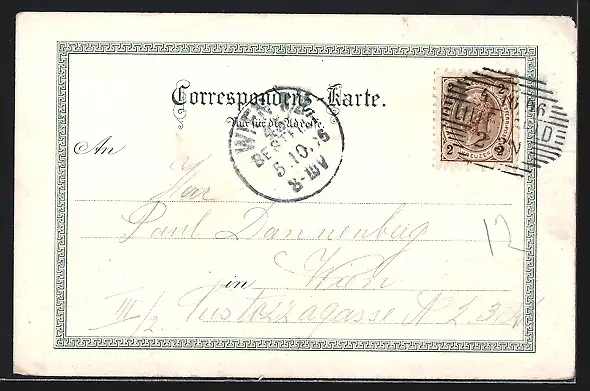 Correspondenz-Karte.
Nur für die Adresse.
WIEN
BESTELLT
5.10.96
8-11 V
2
2 KREUZER 2
An
Herr
Paul Dannenberg
in Wien
III/2. Custozzagasse N
12